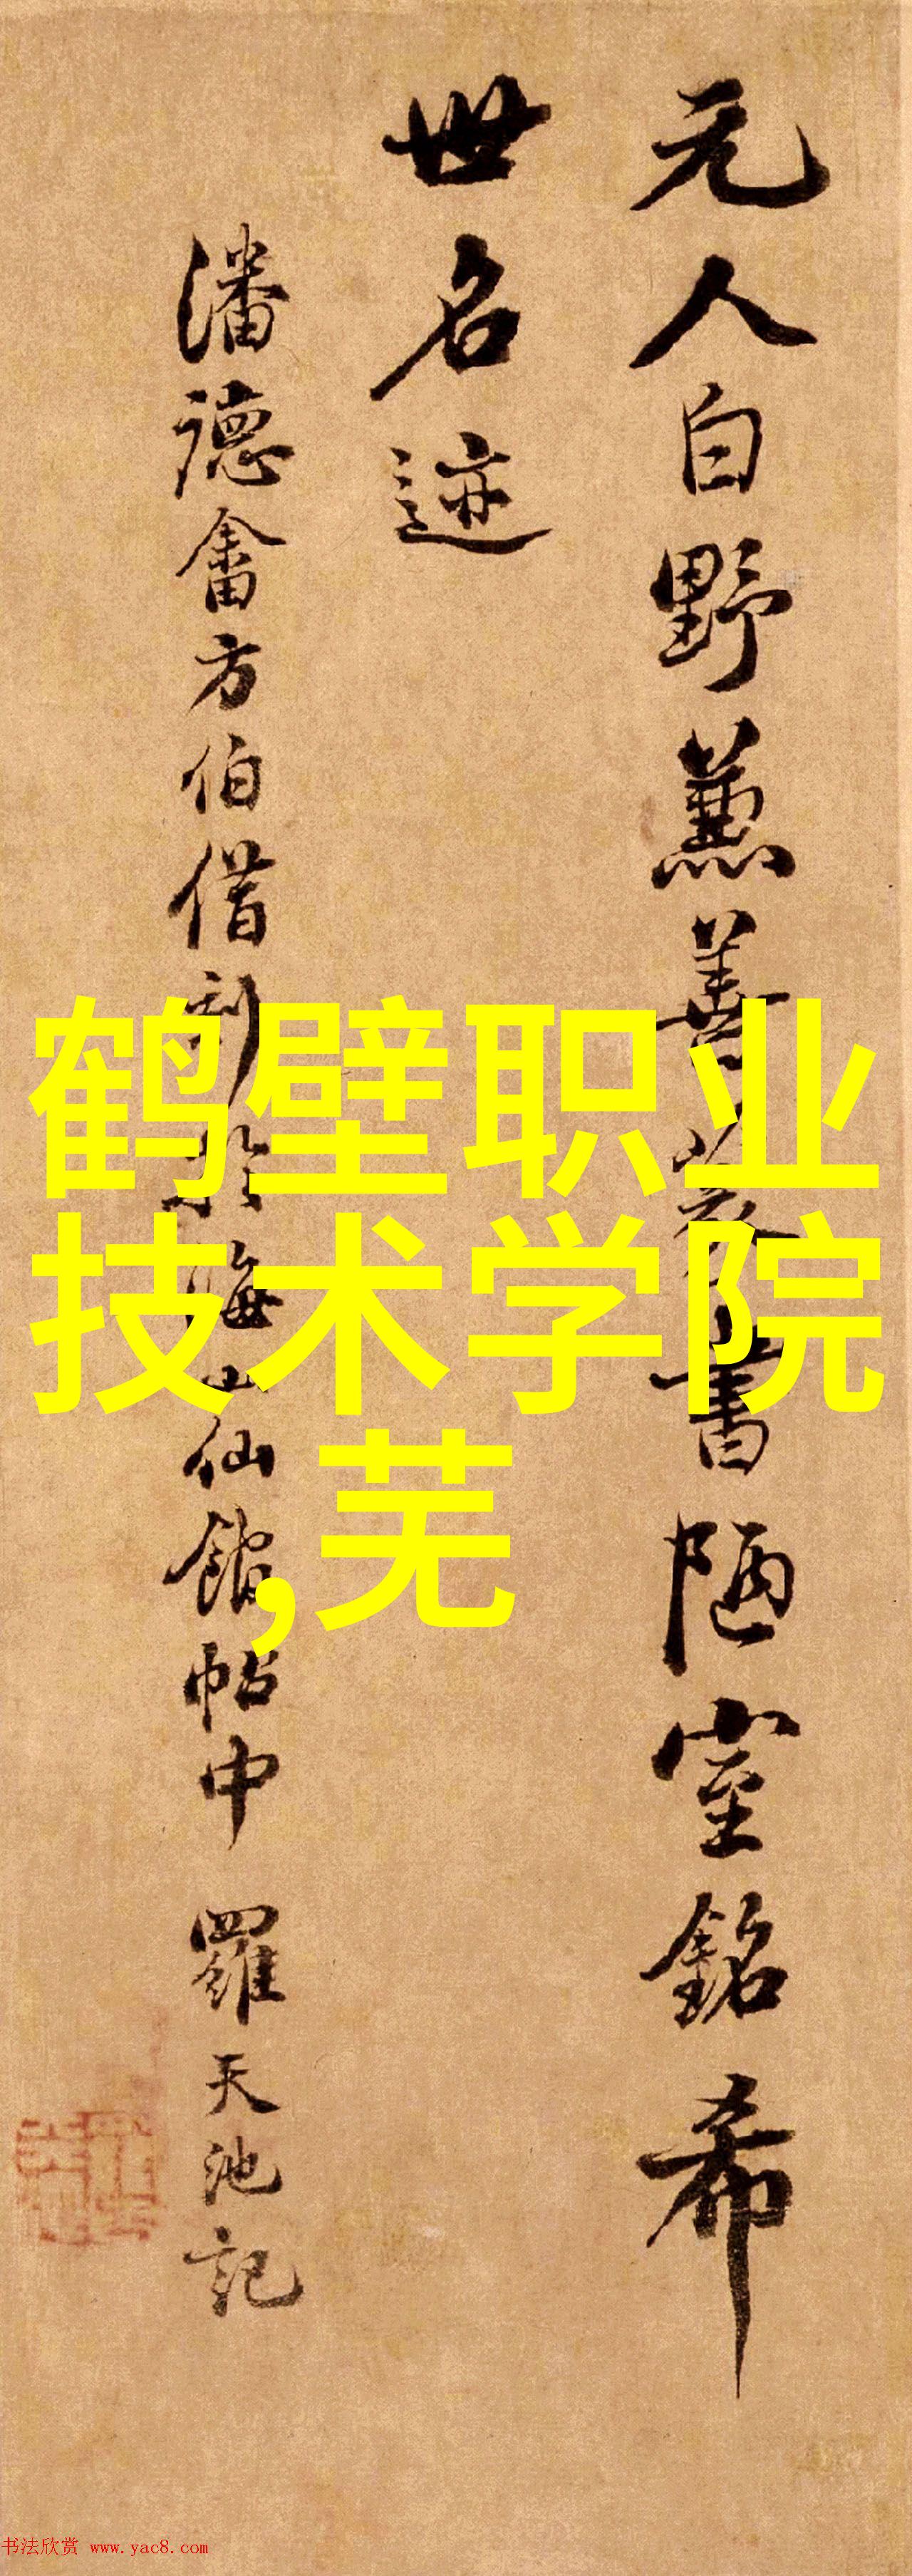 元人白野兼善書陋室銘希
世名迹
潘德畬方伯借刻於海山仙館帖中 羅天池記
鹤壁职业
技术学院
,芜
书法欣赏 www.yac8.com